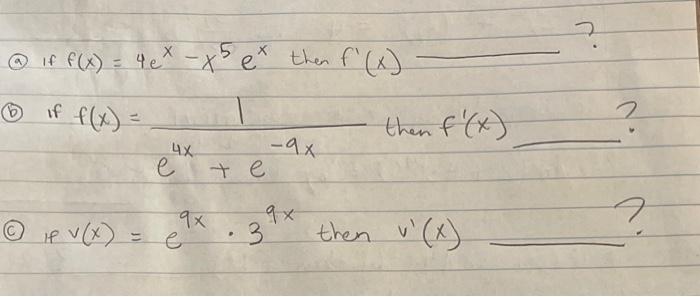 ⓐ if f(x) = 4e^x - x^5 e^x then f'(x) ______ ?
ⓑ if f(x) = 1 / (e^4x + e^-9x) then f'(x) ______ ?
ⓒ if v(x) = e^9x · 3^9x then v'(x) ______ ?